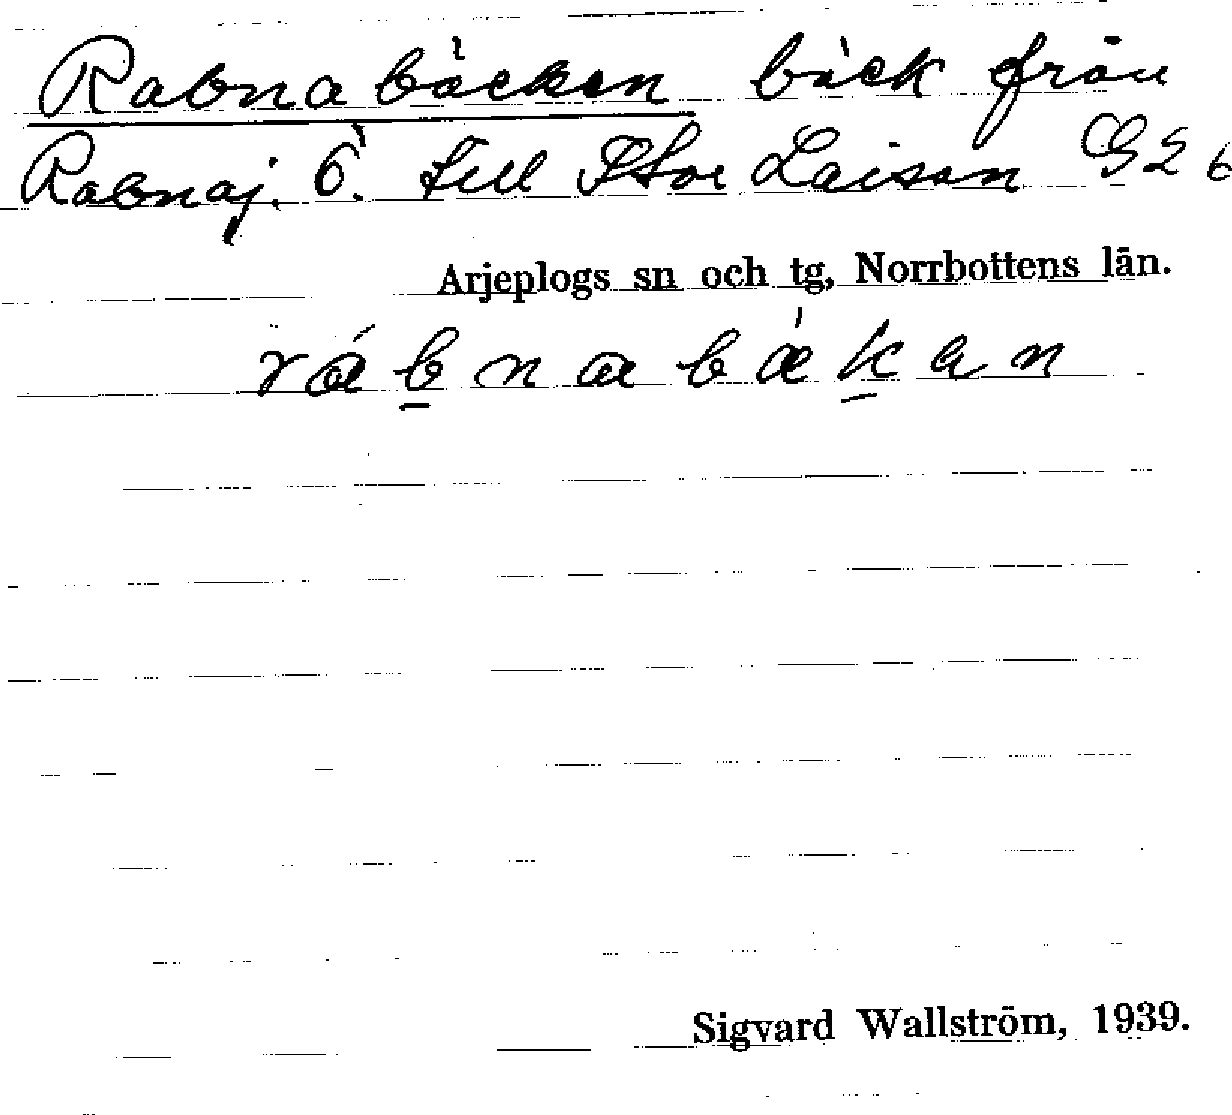 Rabnabäcken bäck från
Rabnaj. ö. till Stor Laisan G 2 b
Arjeplogs sn och tg, Norrbottens län.
rábnabäkan
Sigvard Wallström, 1939.